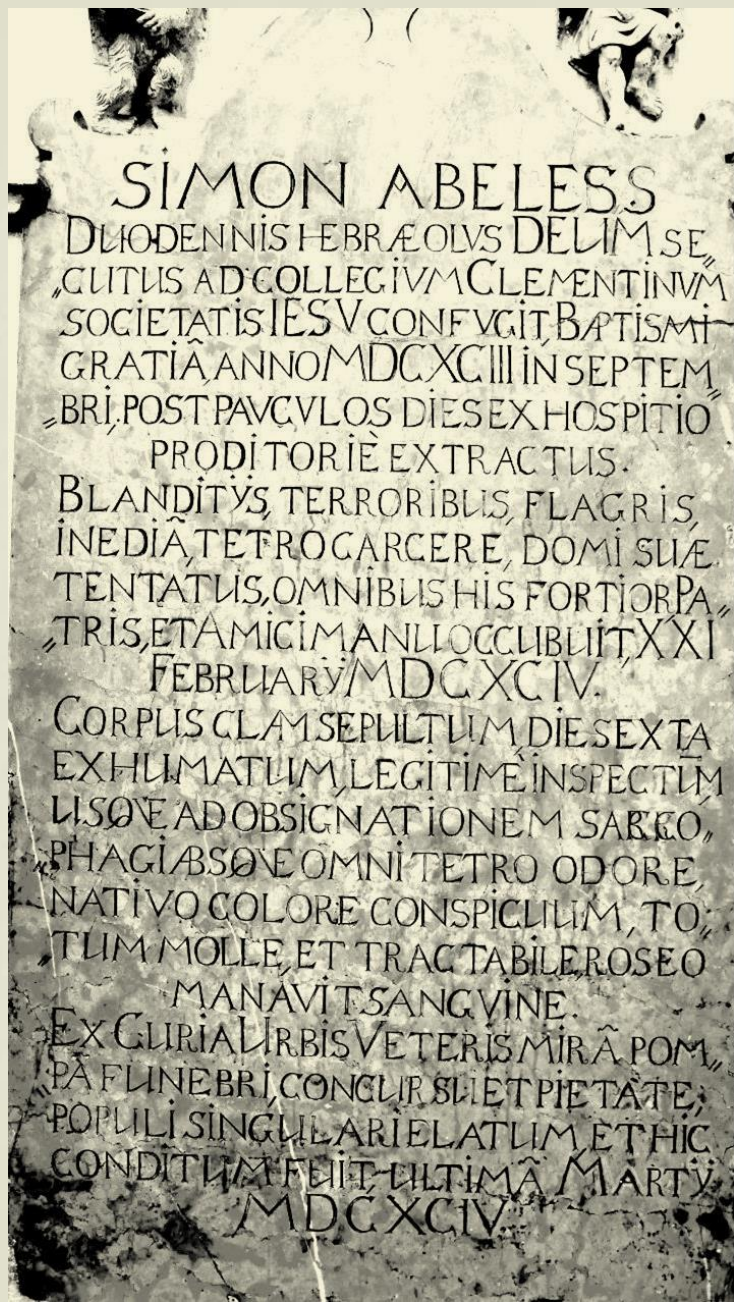 SIMON ABELESS
DUODENNIS HEBRÆOLVS DEUM SE„
„CUTUS AD COLLEGIVM CLEMENTINVM
SOCIETATIS IESV CONFVGIT, BAPTISMI
GRATIÂ, ANNO MDCXCIII IN SEPTEM„
„BRI, POST PAVCVLOS DIES EX HOSPITIO
PRODITORIÈ EXTRACTUS.
BLANDITÿS, TERRORIBUS, FLAGRIS,
INEDIÂ, TETRO CARCERE, DOMI SUÆ
TENTATUS, OMNIBUS HIS FORTIOR PA„
„TRIS, ET AMICI MANU OCCUBUIT, XXI
FEBRUARÿ MDCXCIV.
CORPUS CLAM SEPULTUM, DIE SEXTA
EXHUMATUM, LEGITIMÈ INSPECTUM
USQVE AD OBSIGNATIONEM SARCO„
„PHAGI ABSQVE OMNI TETRO ODORE,
NATIVO COLORE CONSPICUUM, TO„
„TUM MOLLE, ET TRACTABILE, ROSEO
MANAVIT SANGVINE.
EX CURIA URBIS VETERIS MIRÂ POM„
„PA FUNEBRI, CONCURSU ET PIETATE
POPULI SINGULARI ELATUM, ET HIC
CONDITUM FUIT ULTIMÂ MARTÿ
MDCXCIV.